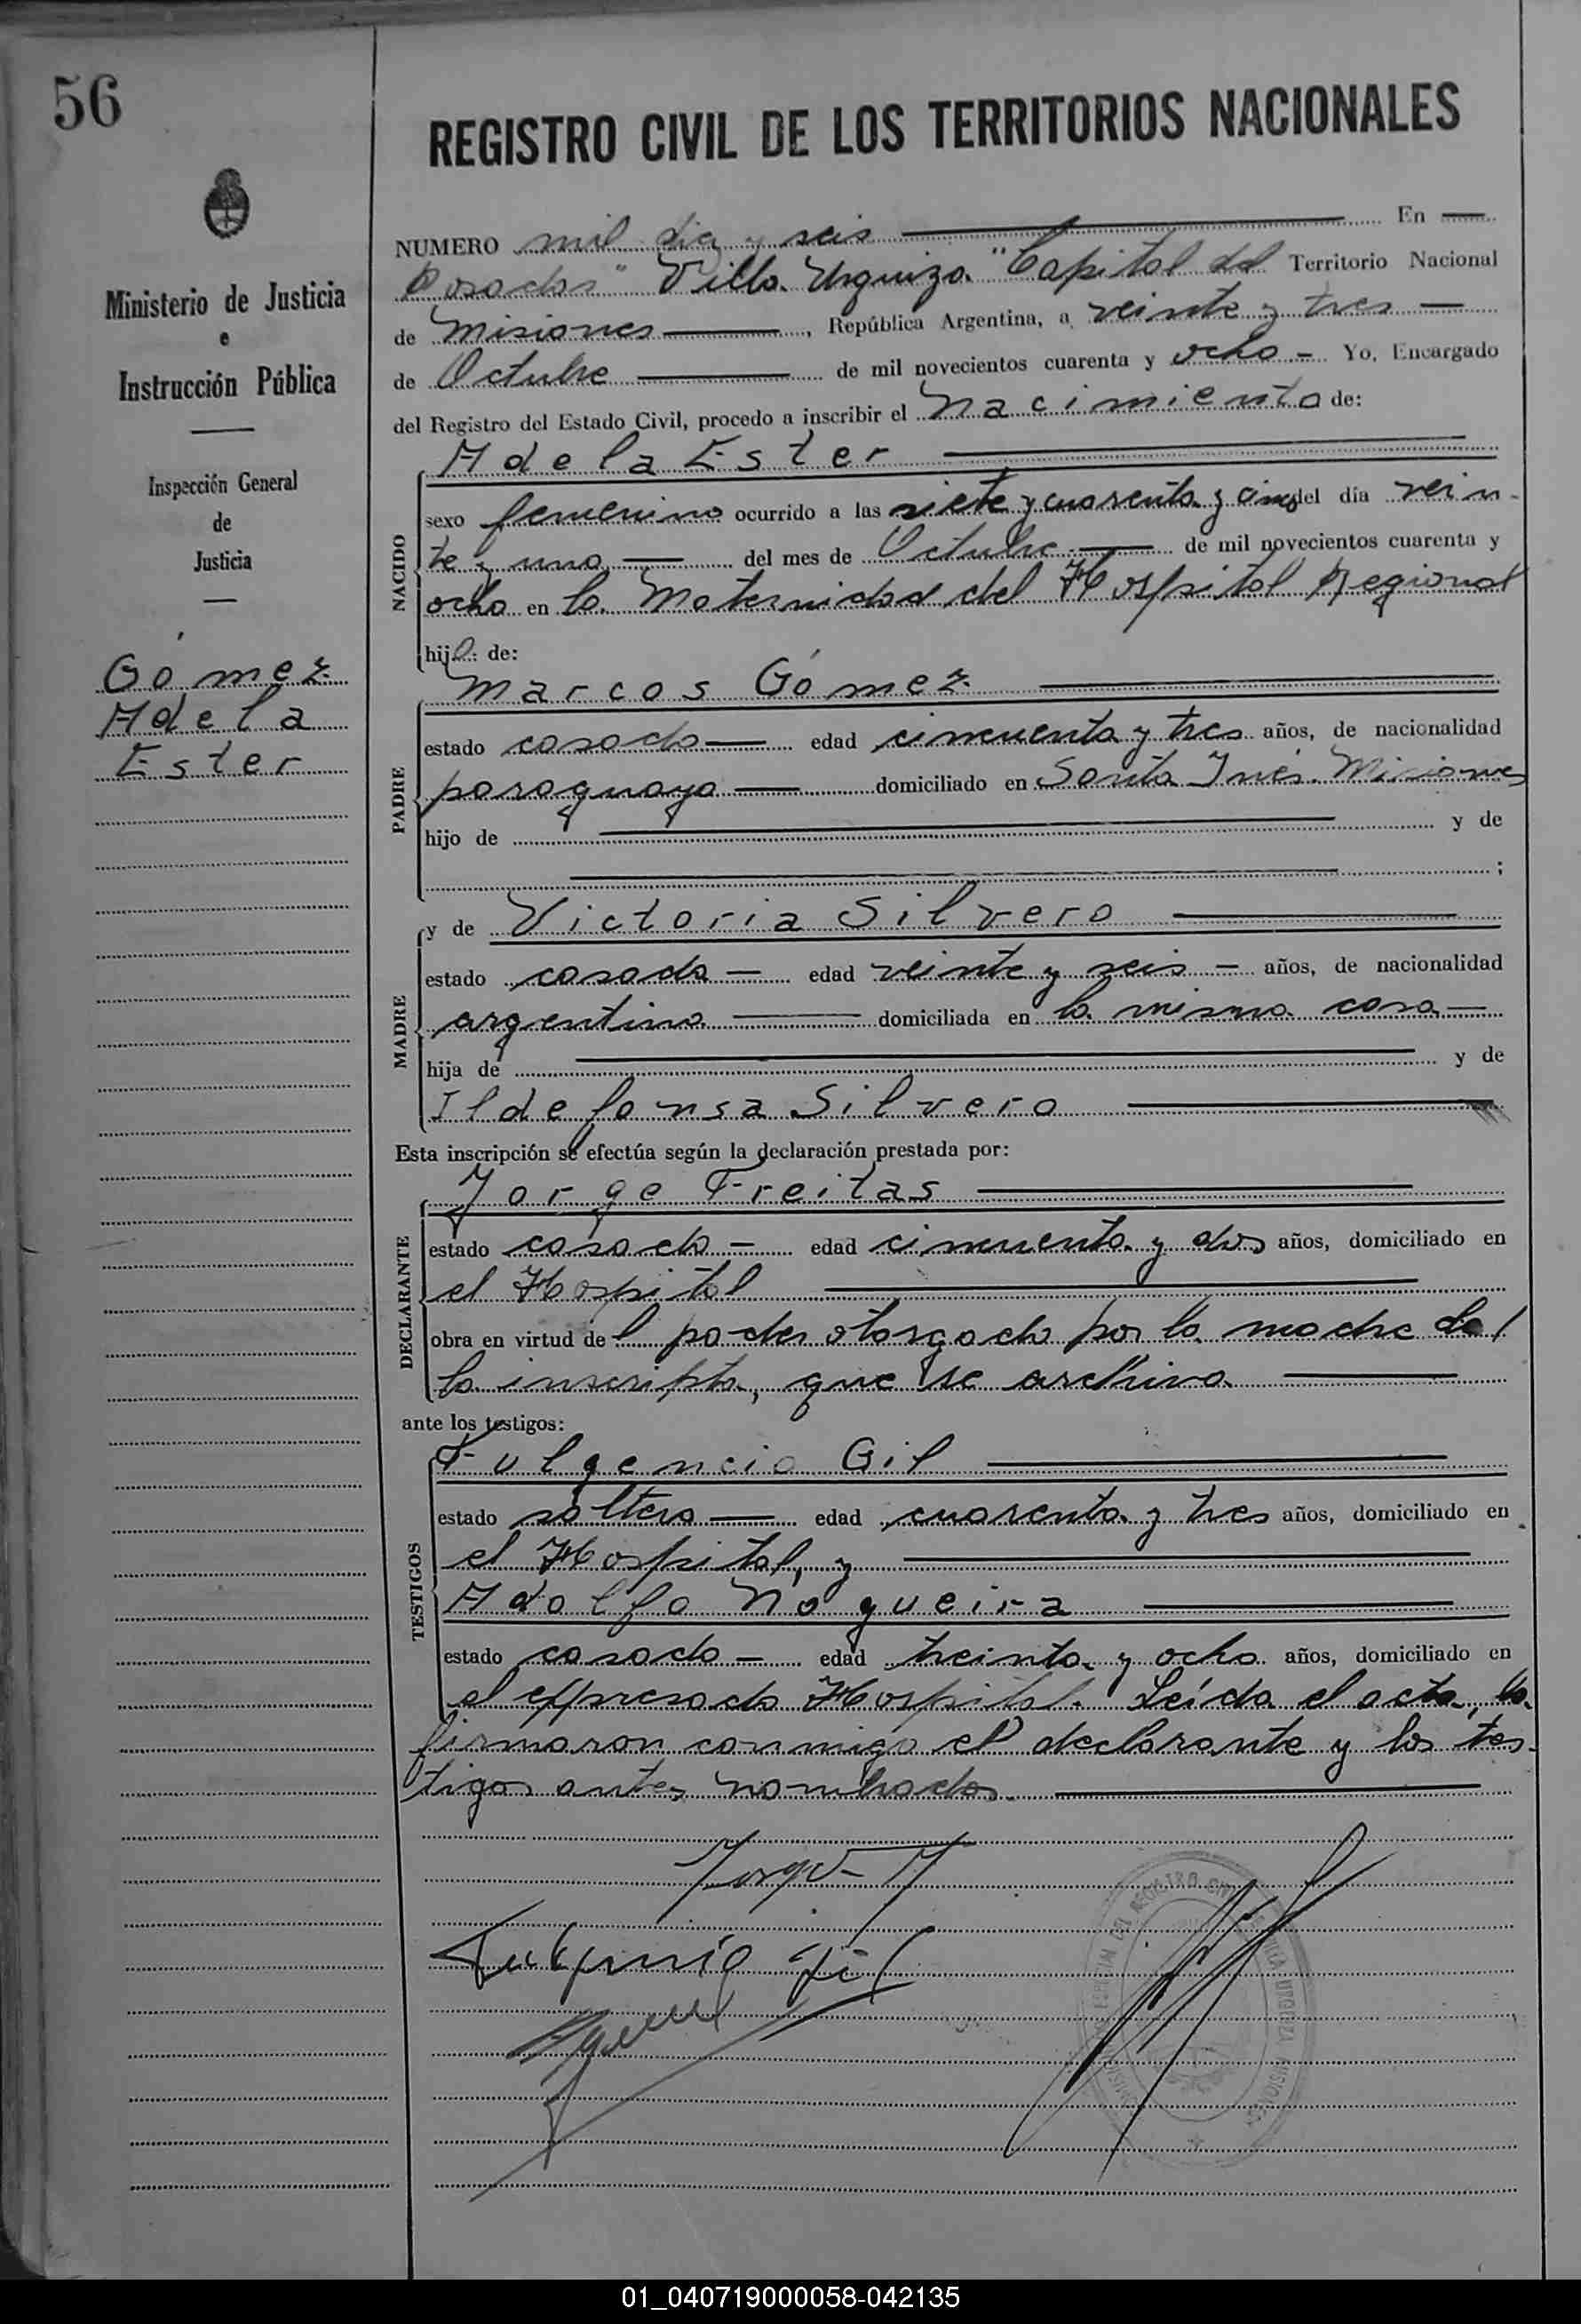 56
REGISTRO CIVIL DE LOS TERRITORIOS NACIONALES
Ministerio de Justicia
e
Instrucción Pública
Inspección General
de
Justicia
Gómez
Adela
Ester
NUMERO mil diez y seis En
Posadas "Villa Urquiza" Capital del Territorio Nacional
de Misiones, República Argentina, a veinte y tres
de Octubre de mil novecientos cuarenta y ocho Yo, Encargado
del Registro del Estado Civil, procedo a inscribir el Nacimiento de:
NACIDO
Adela Ester
sexo femenino ocurrido a las siete y cuarenta y cinco del día vein-
te y uno del mes de Octubre de mil novecientos cuarenta y
ocho en la Maternidad del Hospital Regional
hija de:
PADRE
Marcos Gómez
estado casado edad cincuenta y tres años, de nacionalidad
paraguaya domiciliado en Santa Inés. Misiones
hijo de y de
;
MADRE
y de Victoria Silvero
estado casada edad veinte y seis años, de nacionalidad
argentina domiciliada en la misma casa
hija de y de
Ildefonsa Silvero
Esta inscripción se efectúa según la declaración prestada por:
DECLARANTE
Jorge Freitas
estado casado edad cincuenta y dos años, domiciliado en
el Hospital
obra en virtud del poder otorgado por la madre de
la inscripta, que se archiva
ante los testigos:
TESTIGOS
Fulgencio Gil
estado soltero edad cuarenta y tres años, domiciliado en
el Hospital, y
Adolfo Nogueira
estado casado edad treinta y ocho años, domiciliado en
el expresado Hospital. Leída el acta, la
firmaron conmigo el declarante y los tes-
tigos antes nombrados.
Jorge
Fulgencio Gil
DEL REGISTRO CIVIL VILLA URQUIZA MISIONES
01_040719000058-042135